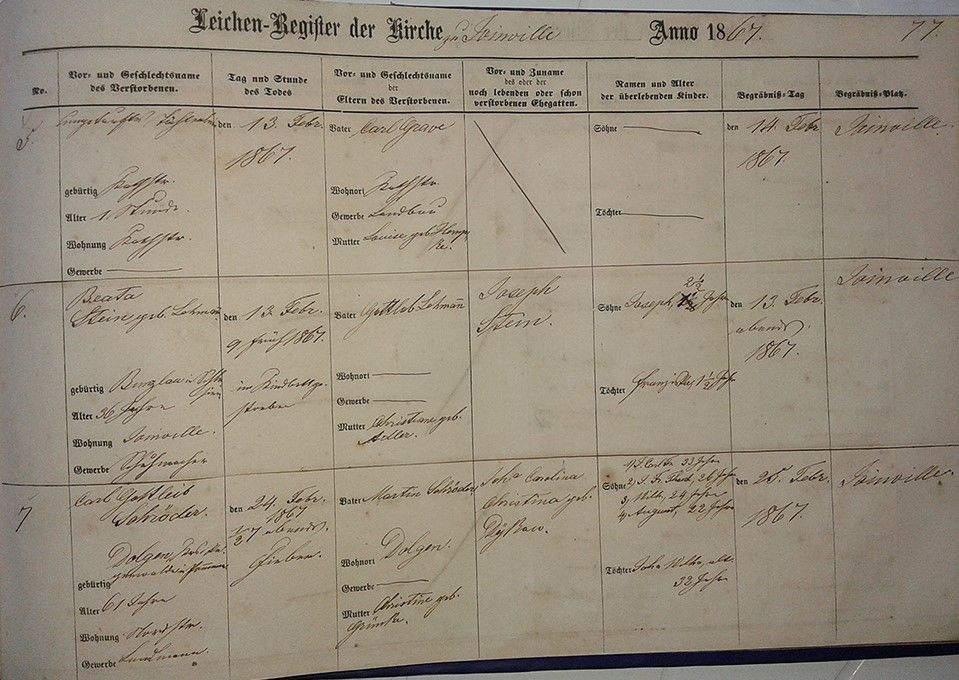 Leichen-Register der Kirche zu Joinville Anno 1867. 77.
No.
Vor- und Geschlechtsname
des Verstorbenen.
Tag und Stunde
des Todes
Vor- und Geschlechtsname
der
Eltern des Verstorbenen.
Vor- und Zuname
des oder der
noch lebenden oder schon
verstorbenen Ehegatten.
Namen und Alter
der überlebenden Kinder.
Begräbniß-Tag
Begräbniß-Platz.
5.
gebürtig
Alter 1 Stunde.
Wohnung
Gewerbe
den 13. Febr.
1867.
Vater Carl Grave
Wohnort
Gewerbe Landbau
Mutter Louise geb.
Söhne
Töchter
den 14. Febr
1867.
Joinville.
6.
Beata
Stein, geb. Lehman
gebürtig Bunzlau in
Alter 36 Jahre
Wohnung Joinville.
Gewerbe Schuhmacher
den 13. Febr.
9 früh 1867.
im Kindbett ge-
storben
Vater Gottlob Lehman
Wohnort
Gewerbe
Mutter Christiane geb.
Adler.
Joseph
Stein.
Söhne Joseph, 2½ Jahr
Töchter 1½ Jahr
den 13. Febr.
abends.
1867.
Joinville
7
Carl Gottlieb
Schröder.
Dolgen,
gebürtig
Alter 61 Jahre
Wohnung Nordstr.
Gewerbe Landmann.
den 24. Febr.
1867
½7 abends.
Fieber.
Vater Martin Schröder
Wohnort Dolgen.
Gewerbe
Mutter Christine geb.
Joha Carolina
Christina geb.
Söhne 1, 33 Jahr
2, 26 Jahr
3, Wilh, 24 Jahr
4, August, 22 Jahr
Töchter Joha Wilhe, alt
32 Jahr
den Febr.
1867.
Joinville.